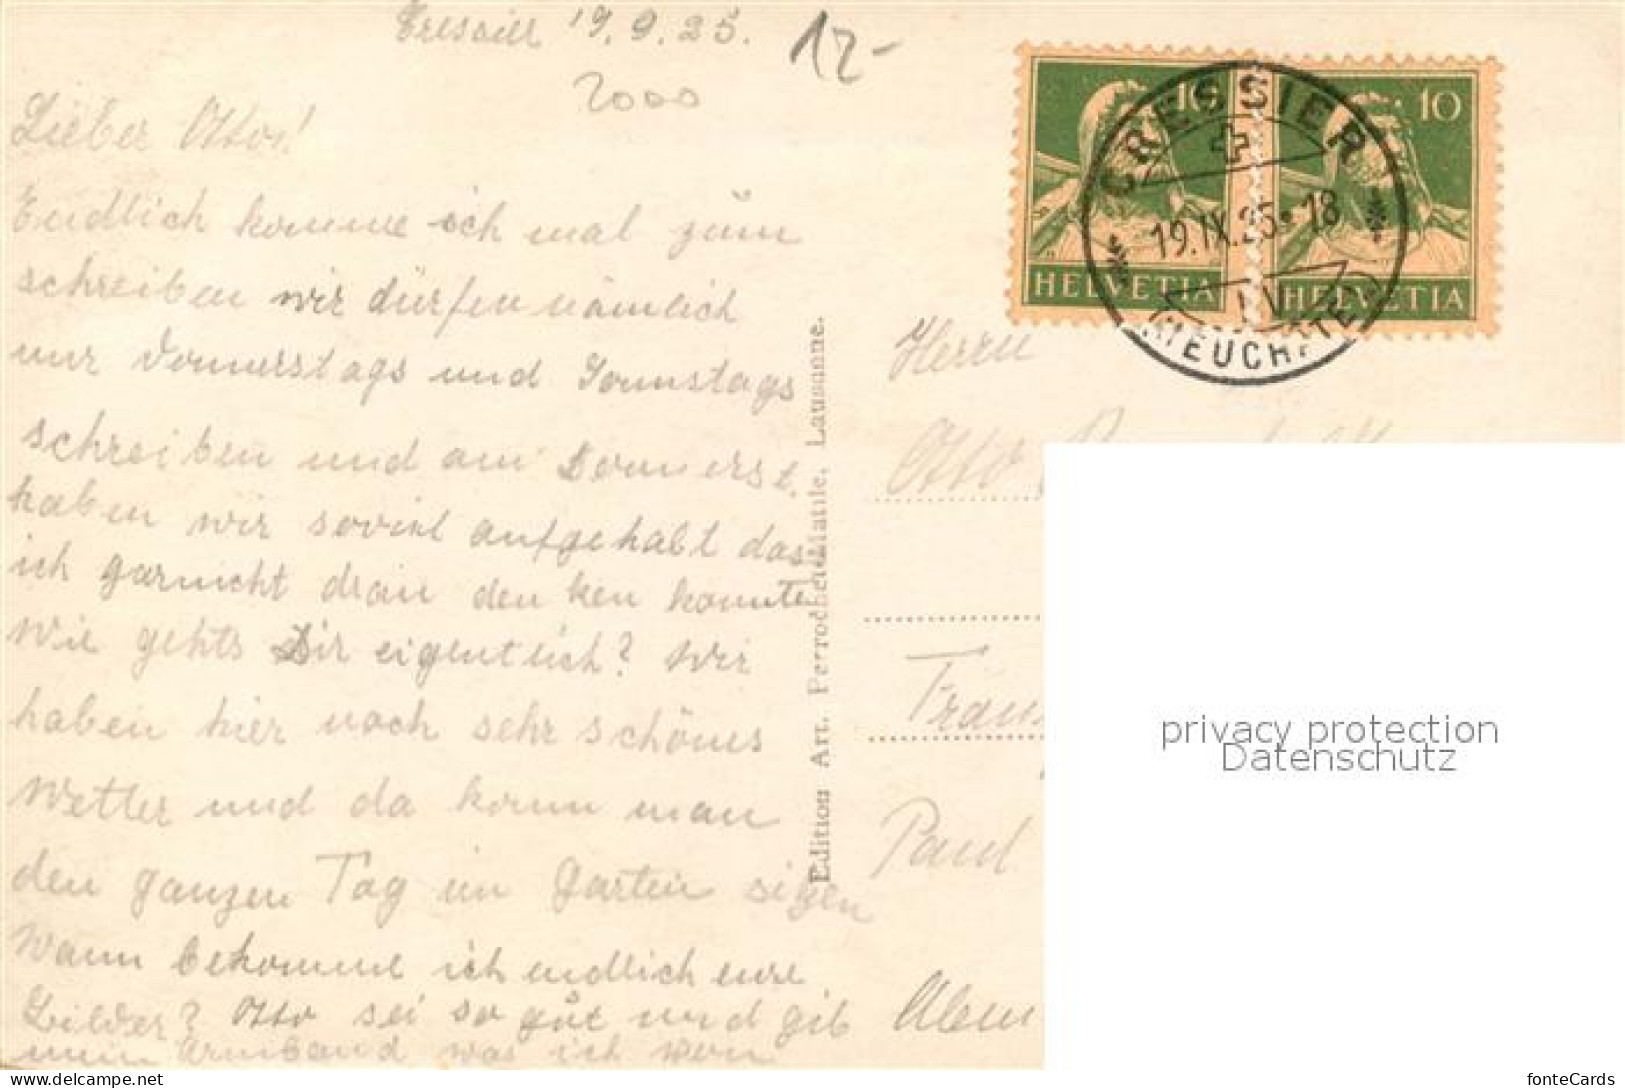 Cressier 19.9.25.
12-
2000
Lieber Otto!
Endlich komme ich mal zum
schreiben wir dürfen nämlich
nur Donnerstags und Sonnstags
schreiben und am Donnerst.
haben wir soviel aufgehabt das
ich garnicht dran den ken konnte
Wie gehts Dir eigentlich? Wir
haben hier noch sehr schönes
Wetter und da konn man
den ganzen Tag im Garten sitzen
Wann bekomme ich endlich eure
Bilder? Otto sei so gut und gib
mein Armband was ich
Edition Art. Perrochet-Matile, Lausanne.
10
10
HELVETIA
HELVETIA
CRESSIER
19.IX.25-18
(NEUCHATEL)
Herrn
Otto
Paul
privacy protection
Datenschutz
www.delcampe.net
fonteCards